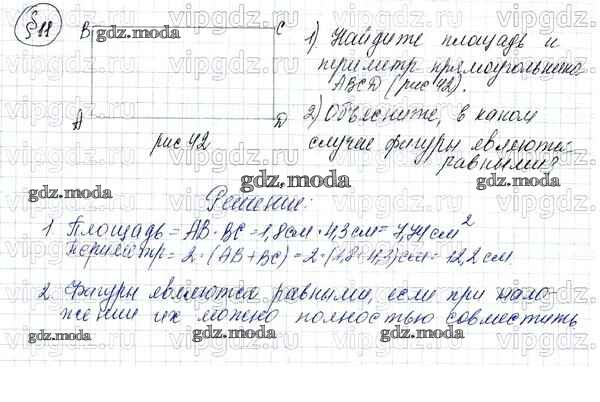 § 11
B C
1) Найдите площадь и
периметр прямоугольника
ABCD (рис 42).
A D
2) Объясните, в каком
рис 42
случае фигуры являются
равными?
Решение:
1 Площадь = AB · BC = 1,8 см · 4,3 см = 7,74 см²
Периметр = 2 · (AB + BC) = 2 · (1,8 + 4,3) см = 12,2 см
2. Фигуры являются равными, если при нало-
жении их можно полностью совместить
gdz.moda
gdz.moda
gdz.moda
gdz.moda
gdz.moda
gdz.moda
gdz.moda
gdz.moda
vipgdz.ru